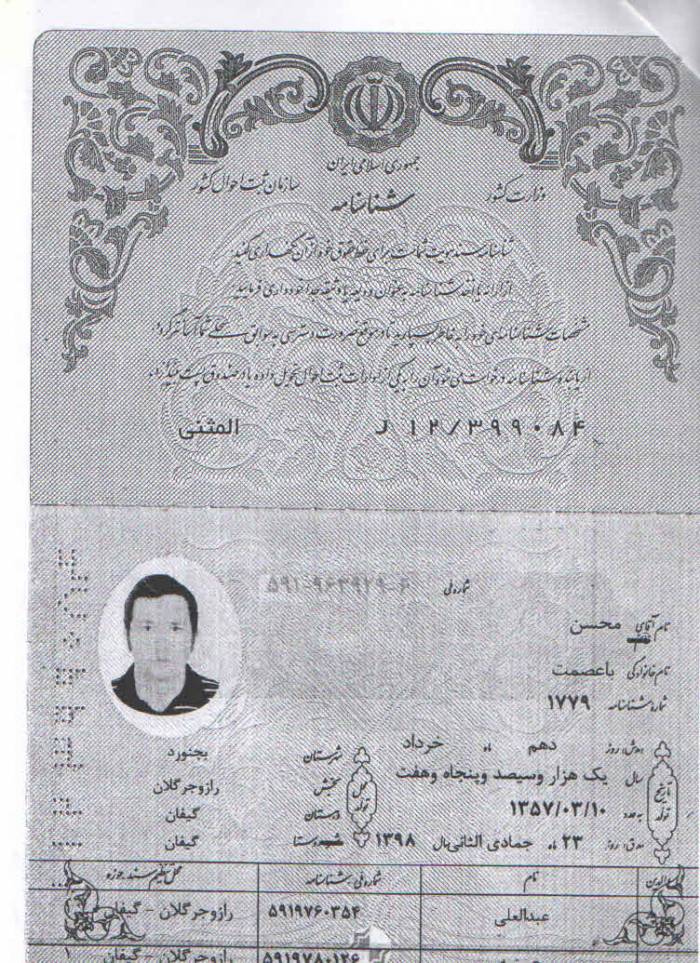 جمهوری اسلامی ایران
وزارت کشور
سازمان ثبت احوال کشور
شناسنامه
شناسنامه سند هویت شماست برای حفظ حقوق خود از آن نگهداری کنید.
از ارائه یا اخذ شناسنامه به عنوان ودیعه یا وثیقه جداً خودداری فرمایید.
مشخصات شناسنامه‌ای خود را به خاطر بسپارید تا در مواقع ضرورت دسترسی به سوابق سجلی شما آسانتر گردد.
از یابنده شناسنامه درخواست می شود آن را به یکی از ادارات ثبت احوال تحویل داده یا در صندوق پست بیندازد.
المثنی
۱۲/۳۹۹۰۸۴ ل
شماره ملی ۵۹۱-۹۶۳۹۲۹-۶
نام آقای محسن
نام خانوادگی باعصمت
شماره شناسنامه ۱۷۷۹
تاریخ تولد
ه‍.ش. روز دهم ماه خرداد
سال یک هزار وسیصد وپنجاه وهفت
به عدد ۱۳۵۷/۰۳/۱۰
ه‍.ق. روز ۲۳ ماه جمادی الثانی سال ۱۳۹۸
محل تولد
شهرستان بجنورد
بخش رازوجرگلان
دهستان گیفان
شهر-روستا گیفان
نام
شماره ملی-شناسنامه
محل تنظیم سند-حوزه
عبدالعلی
۵۹۱۹۷۶۰۳۵۴
رازوجرگلان - گیفان
۵۹۱۹۷۸۰۱۲۶
رازوجرگلان - گیفان